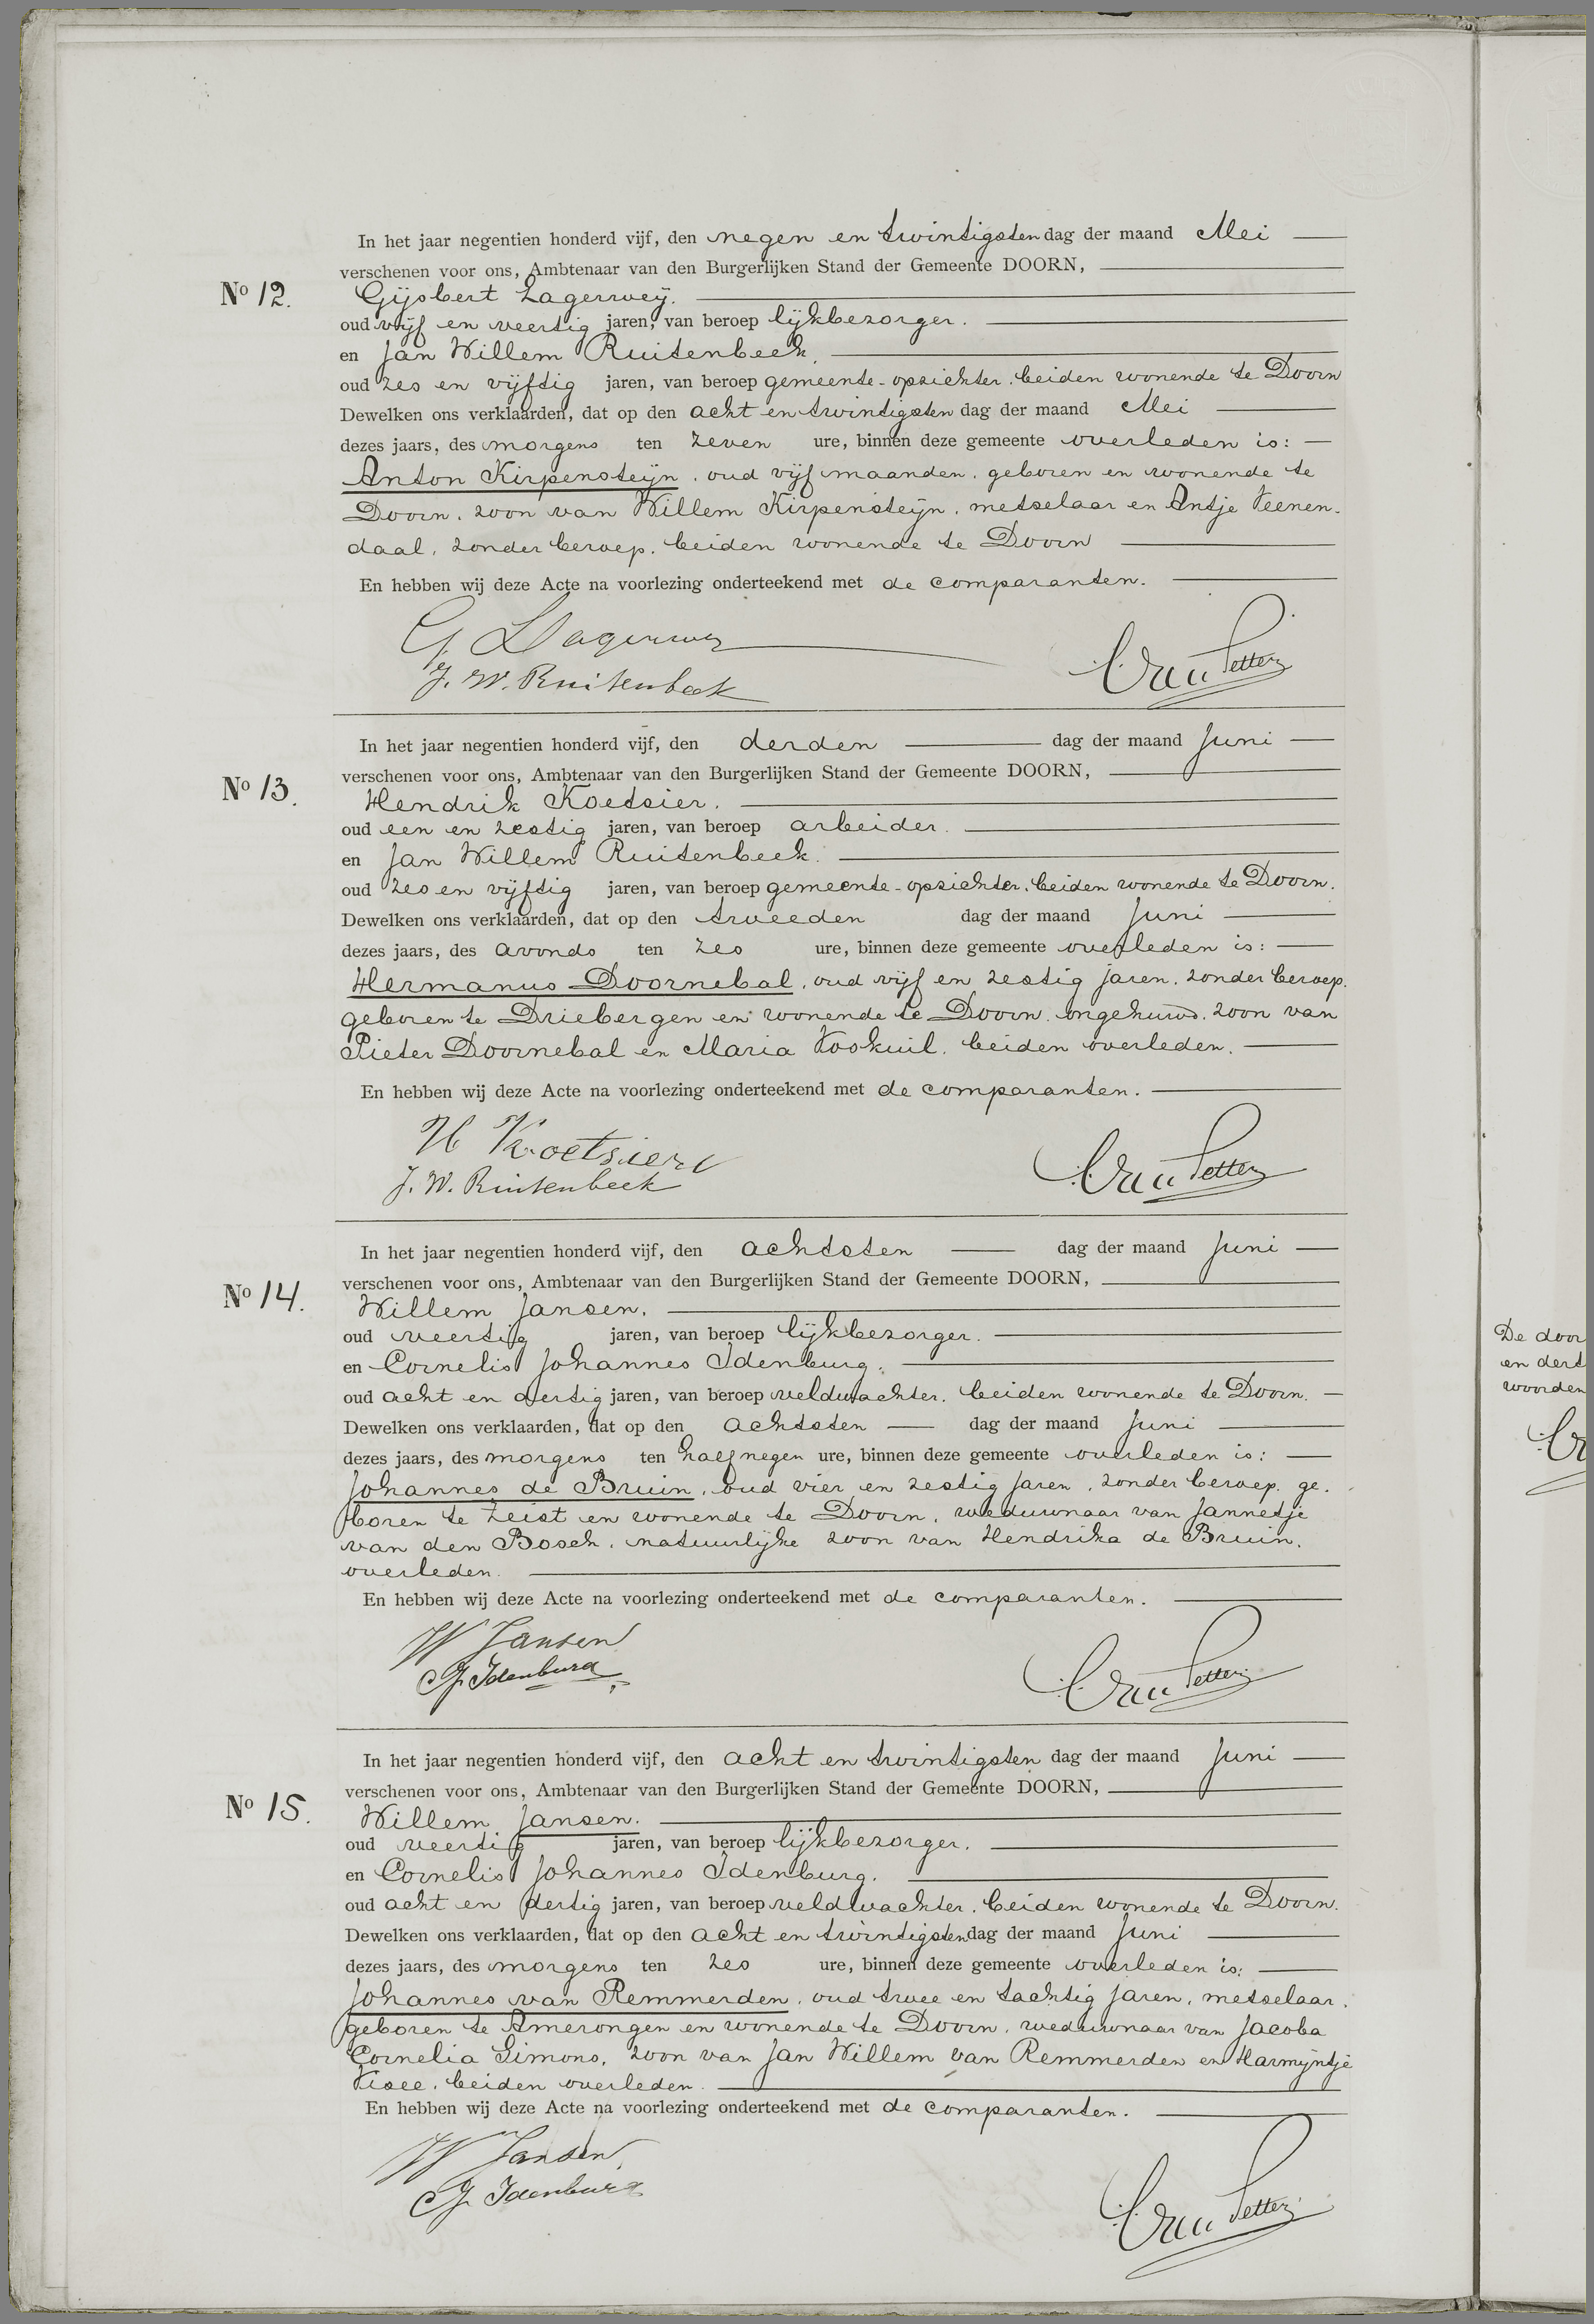 In het jaar negentien honderd vijf, den negen en twintigsten dag der maand Mei
verschenen voor ons, Ambtenaar van den Burgerlijken Stand der Gemeente DOORN,
No 12.
Gijsbert Lagerweij.
oud vijf en veertig jaren, van beroep lijkbezorger.
en Jan Willem Ruitenbeek,
oud zes en vijftig jaren, van beroep gemeente-opzichter, beiden wonende te Doorn
Dewelken ons verklaarden, dat op den acht en twintigsten dag der maand Mei
dezes jaars, des morgens ten zeven ure, binnen deze gemeente overleden is:
Anton Kirpensteijn, oud vijf maanden, geboren en wonende te
Doorn, zoon van Willem Kirpensteijn, metselaar en Antje Veenen-
daal, zonder beroep, beiden wonende te Doorn
En hebben wij deze Acte na voorlezing onderteekend met de comparanten.
G Lagerwey
J. W. Ruitenbeek
In het jaar negentien honderd vijf, den derden dag der maand Juni
verschenen voor ons, Ambtenaar van den Burgerlijken Stand der Gemeente DOORN,
No 13.
Hendrik Koetsier.
oud een en zestig jaren, van beroep arbeider.
en Jan Willem Ruitenbeek.
oud zes en vijftig jaren, van beroep gemeente-opzichter, beiden wonende te Doorn.
Dewelken ons verklaarden, dat op den tweeden dag der maand Juni
dezes jaars, des avonds ten zes ure, binnen deze gemeente overleden is:
Hermanus Doornebal, oud vijf en zestig jaren, zonder beroep,
geboren te Driebergen en wonende te Doorn, ongehuwd, zoon van
Pieter Doornebal en Maria Voskuil, beiden overleden.
En hebben wij deze Acte na voorlezing onderteekend met de comparanten.
H Koetsier
J. W. Ruitenbeek
In het jaar negentien honderd vijf, den achtsten dag der maand Juni
verschenen voor ons, Ambtenaar van den Burgerlijken Stand der Gemeente DOORN,
No 14.
Willem Jansen.
oud veertig jaren, van beroep lijkbezorger.
en Cornelis Johannes Idenburg.
oud acht en dertig jaren, van beroep veldwachter, beiden wonende te Doorn.
Dewelken ons verklaarden, dat op den achtsten dag der maand Juni
dezes jaars, des morgens ten half negen ure, binnen deze gemeente overleden is:
Johannes de Bruin, oud vier en zestig jaren, zonder beroep, ge-
boren te Zeist en wonende te Doorn, weduwnaar van Jannetje
van den Bosch, natuurlijke zoon van Hendrika de Bruin,
overleden.
En hebben wij deze Acte na voorlezing onderteekend met de comparanten.
W Jansen
CJ. Idenburg
In het jaar negentien honderd vijf, den acht en twintigsten dag der maand Juni
verschenen voor ons, Ambtenaar van den Burgerlijken Stand der Gemeente DOORN,
No 15.
Willem Jansen.
oud veertig jaren, van beroep lijkbezorger.
en Cornelis Johannes Idenburg.
oud acht en dertig jaren, van beroep veldwachter, beiden wonende te Doorn.
Dewelken ons verklaarden, dat op den acht en twintigsten dag der maand Juni
dezes jaars, des morgens ten zes ure, binnen deze gemeente overleden is:
Johannes van Remmerden, oud twee en tachtig jaren, metselaar,
geboren te Amerongen en wonende te Doorn, weduwnaar van Jacoba
Cornelia Simons, zoon van Jan Willem van Remmerden en Harmijntje
Visee, beiden overleden.
En hebben wij deze Acte na voorlezing onderteekend met de comparanten.
W Jansen
CJ Idenburg
De door
en dert
woorden